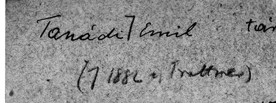 Tanádi] Emil tan
(] 1882 Trattner)